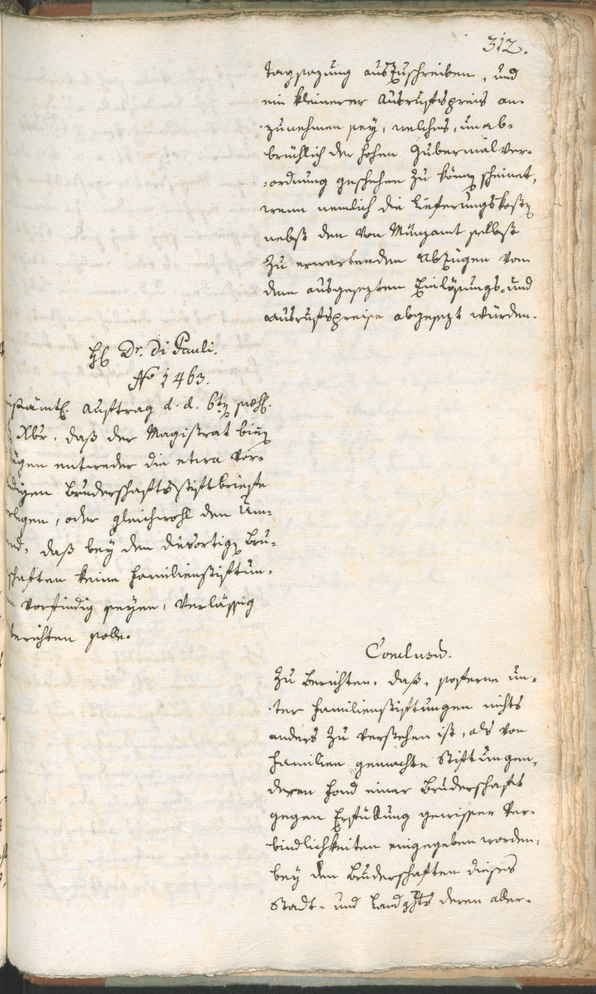 312.
tagsazung auszuschreiben, und
ein kleinerer Ausrufspreis an-
zunehmen sey, welches, unab-
brüchlich der hohen Gubernial ver-
ordnung geschehen zu könen scheinet,
wenn nemlich die Lieferungskosten
nebst den von Münzamt selbst
zu erwartenden Abzügen von
dem ausgesezten Einlösungs- und
Ausrufspreise abgesezt würden.
H Dr. Di Pauli.
No 1463.
Auftrag d. d. 6ten
Xbr, daß der Magistrat
entweder die etwa vor-
digen Bruderschaftsstiftbriefe
legen, oder gleichwohl den Um-
daß bey den diesortigen Bru-
schaften keine Familienstiftun-
vorfindig seyen, verlässig
berichten solle.
Conclusum.
Zu berichten, daß, soferne un-
ter Familienstiftungen nichts
anders zu verstehen ist, als von
Familien gemachte Stiftungen,
deren Fond einer Bruderschaft
gegen Erfüllung gewisser Ver-
bindlichkeiten eingegeben worden,
bey den Bruderschaften dieses
Stadt- und Landghts deren aller-